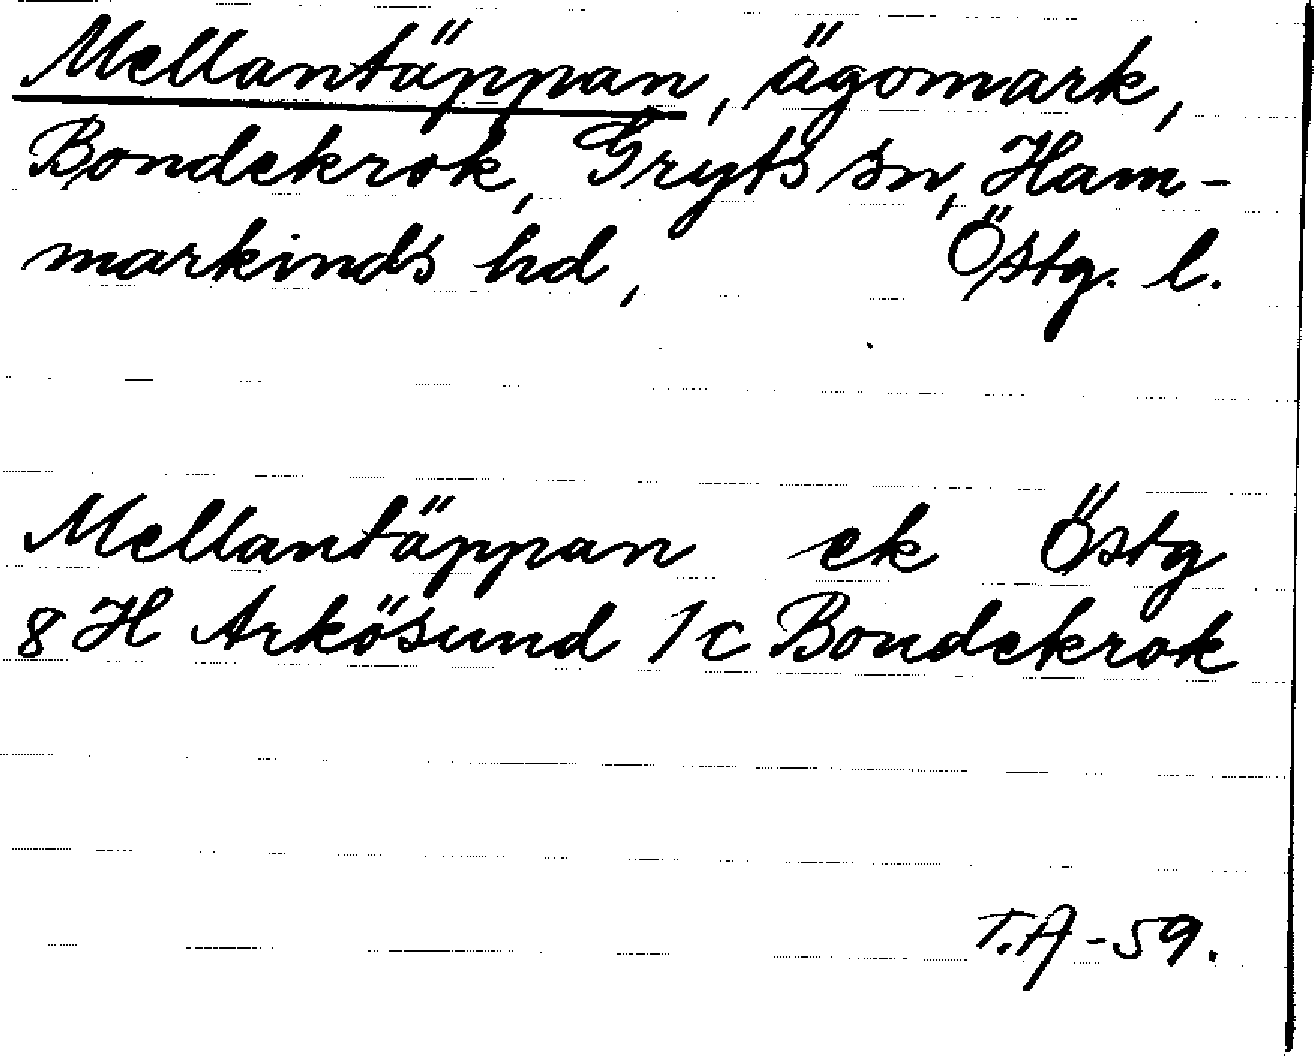 Mellantäppan, ägomark,
Bondekrok, Gryts sn, Ham-
markinds hd, Östg. l.
Mellantäppan ek Östg
8 H Arkösund 1c Bondekrok
T.A-59.